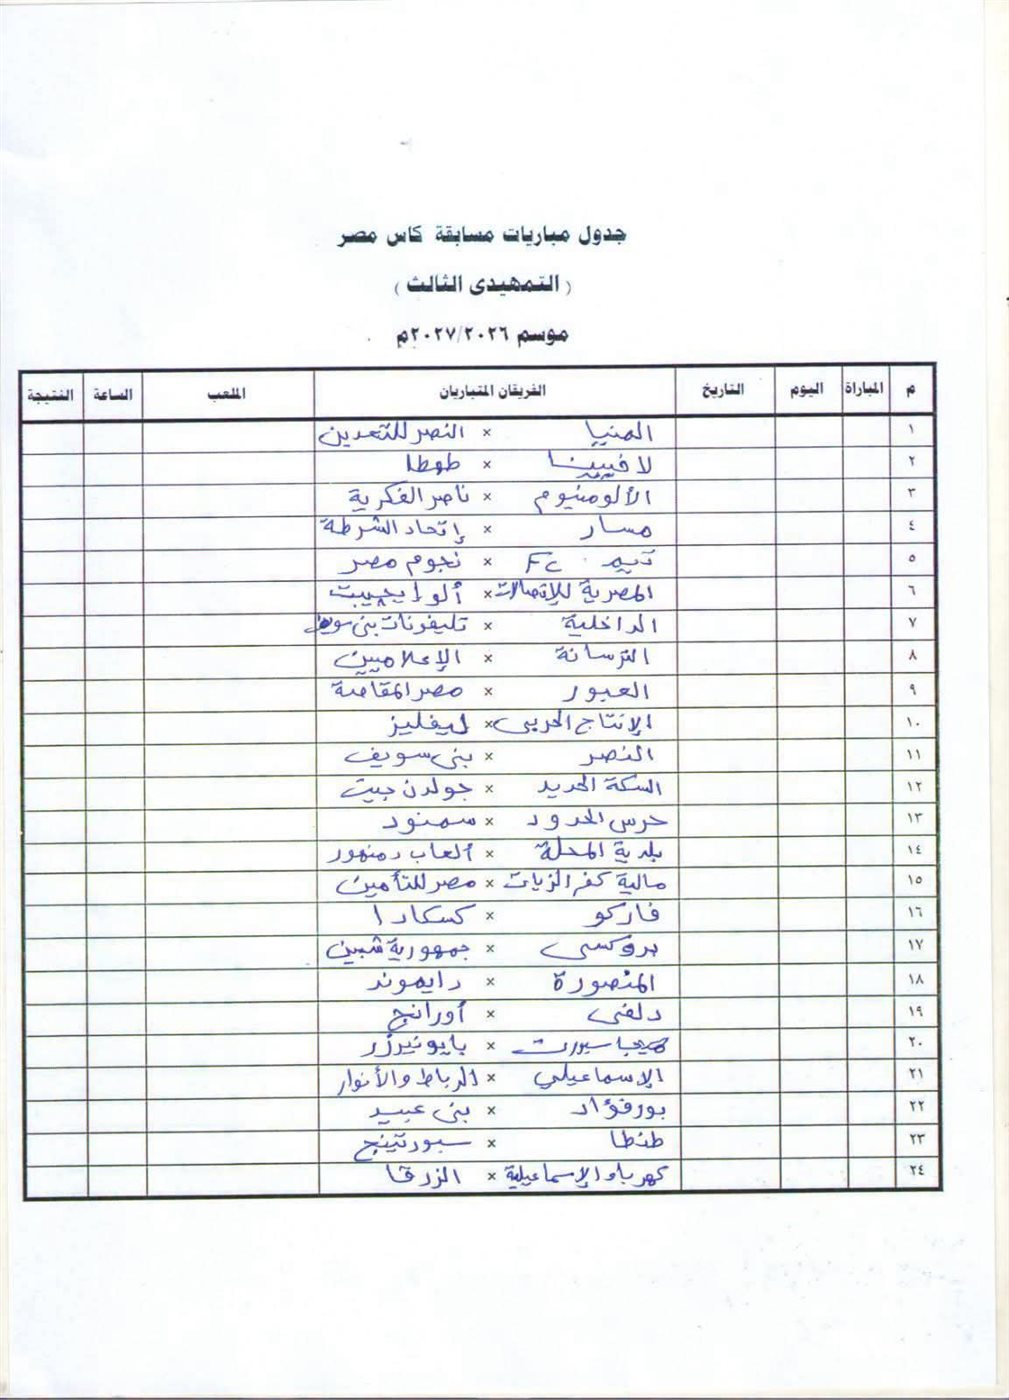 جدول مباريات مسابقة كاس مصر
( التمهيدى الثالث )
موسم ٢٠٢٧/٢٠٢٦م
م المباراة اليوم التاريخ الفريقان المتباريان الملعب الساعة النتيجة
١ المنيا × النصر للتعدين
٢ لافيينا × طهطا
٣ الألومنيوم × ناصر الفكرية
٤ مسار × إتحاد الشرطة
٥ تييم FC × نجوم مصر
٦ المصرية للإتصالات × ألو إيجيبت
٧ الداخلية × تليفونات بنى سويف
٨ الترسانة × الإعلاميين
٩ العبور × مصر المقاصة
١٠ الإنتاج الحربى × ليفليز
١١ النصر × بنى سويف
١٢ السكة الحديد × جولدن جيت
١٣ حرس الحدود × سمنود
١٤ بلدية المحلة × ألعاب دمنهور
١٥ مالية كفر الزيات × مصر للتأمين
١٦ فاركو × كسكادا
١٧ بروكسى × جمهورية شبين
١٨ المنصورة × دايموند
١٩ دلفى × أورانج
٢٠ سبورت × بايونيرز
٢١ الإسماعيلي × الرباط والأنوار
٢٢ بورفؤاد × بنى عبيد
٢٣ طنطا × سبورتينج
٢٤ كهرباء الإسماعيلية × الزرقا